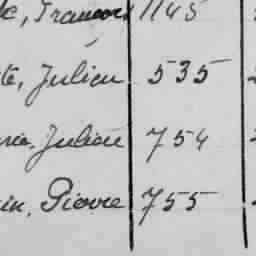 , Francois 1145
té, Julien 535
rie, Julien 754
in, Pierre 755